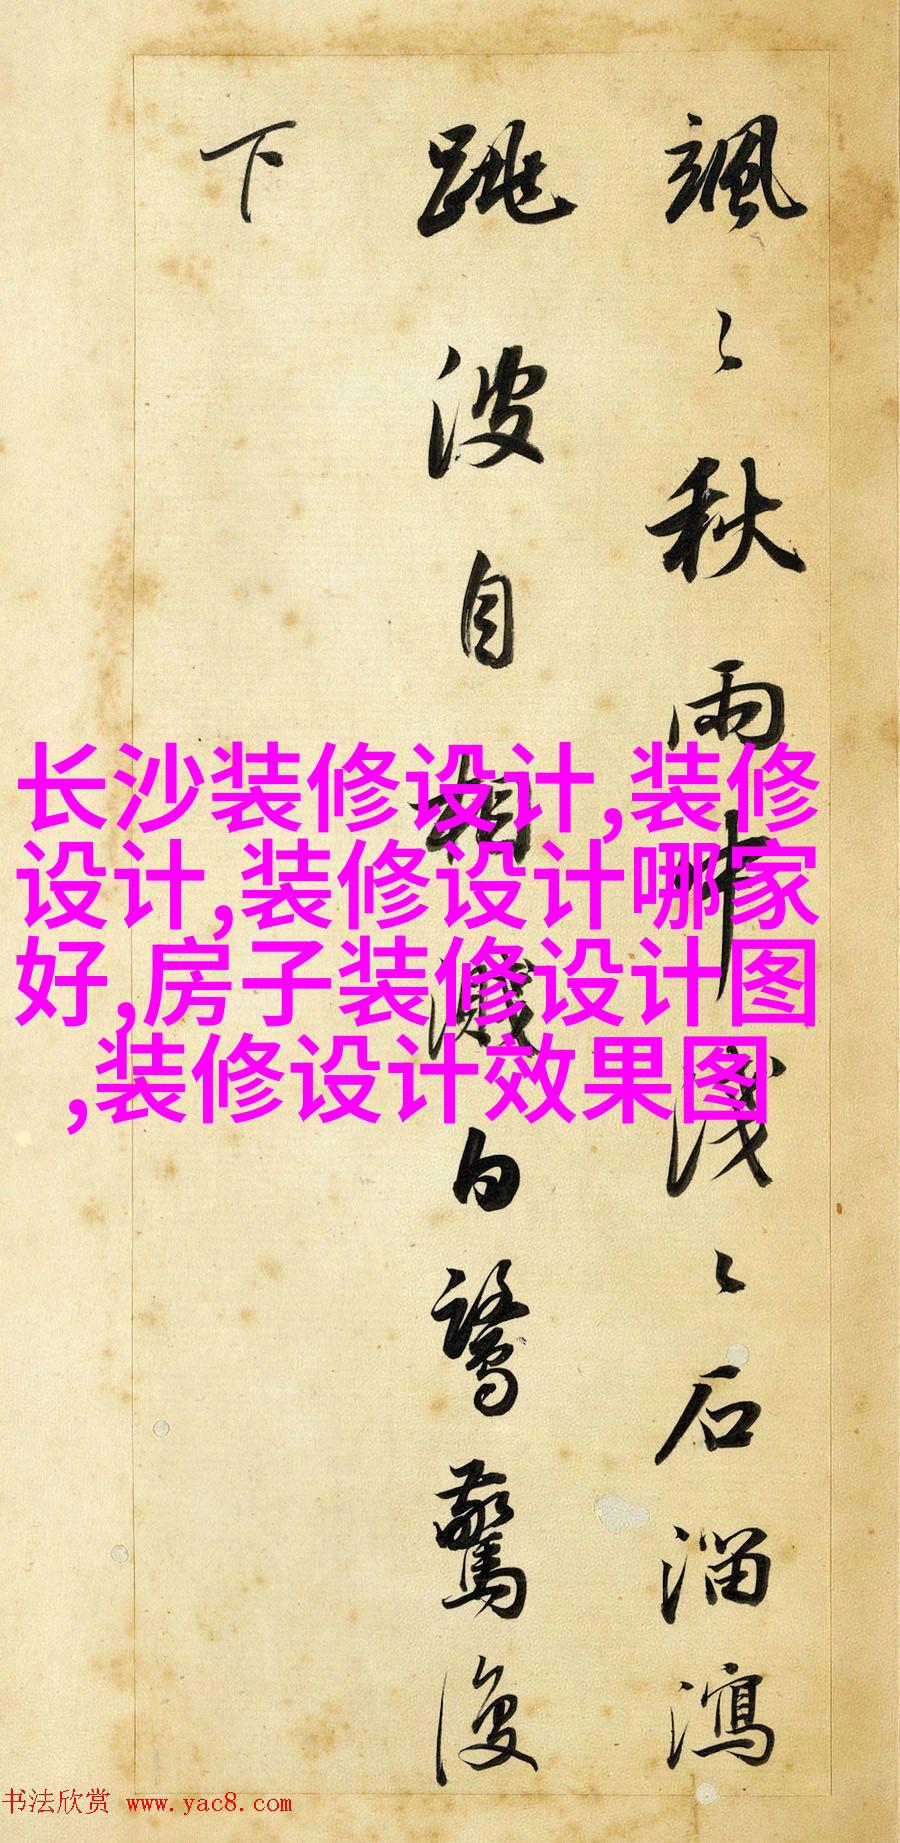 颯〻秋雨中淺〻石溜瀉
跳波自相濺白鷺驚復
下
长沙装修设计,装修
设计,装修设计哪家
好,房子装修设计图
,装修设计效果图
书法欣赏 www.yac8.com